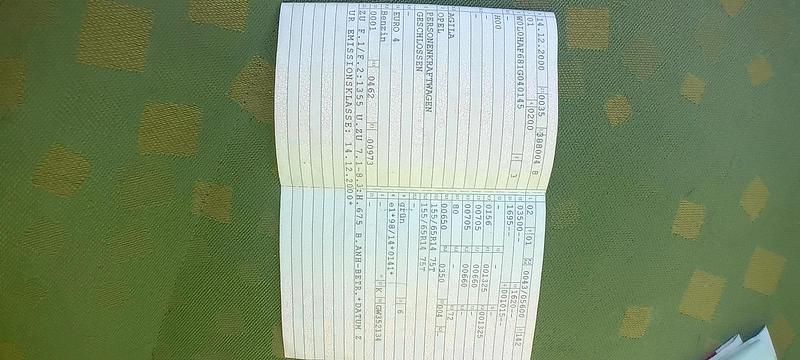 14.12.2000 0035 388004 8
01 0200
W0L0HAF681G040145 3
-
H00
-
-
AGILA
OPEL
PERSONENKRAFTWAGEN
GESCHLOSSEN
-
EURO 4
Benzin
0001 0462 00973
ZU F.1/F.2:1355 U.ZU 7.1-8.3:H.675 B.ANH-BETR.*DATUM Z
UR EMISSIONSKLASSE: 14.12.2000*
02 01 0043/05600 142
03500-- 1620--
1695-- 01015--
- -
0156 001325 001325
00705 00660 -
00705 00660 -
80 - 72
00650 0350 004 -
155/65R14 75T
155/65R14 75T
-
grün 6
e1*98/14*0141*
- K GW352134